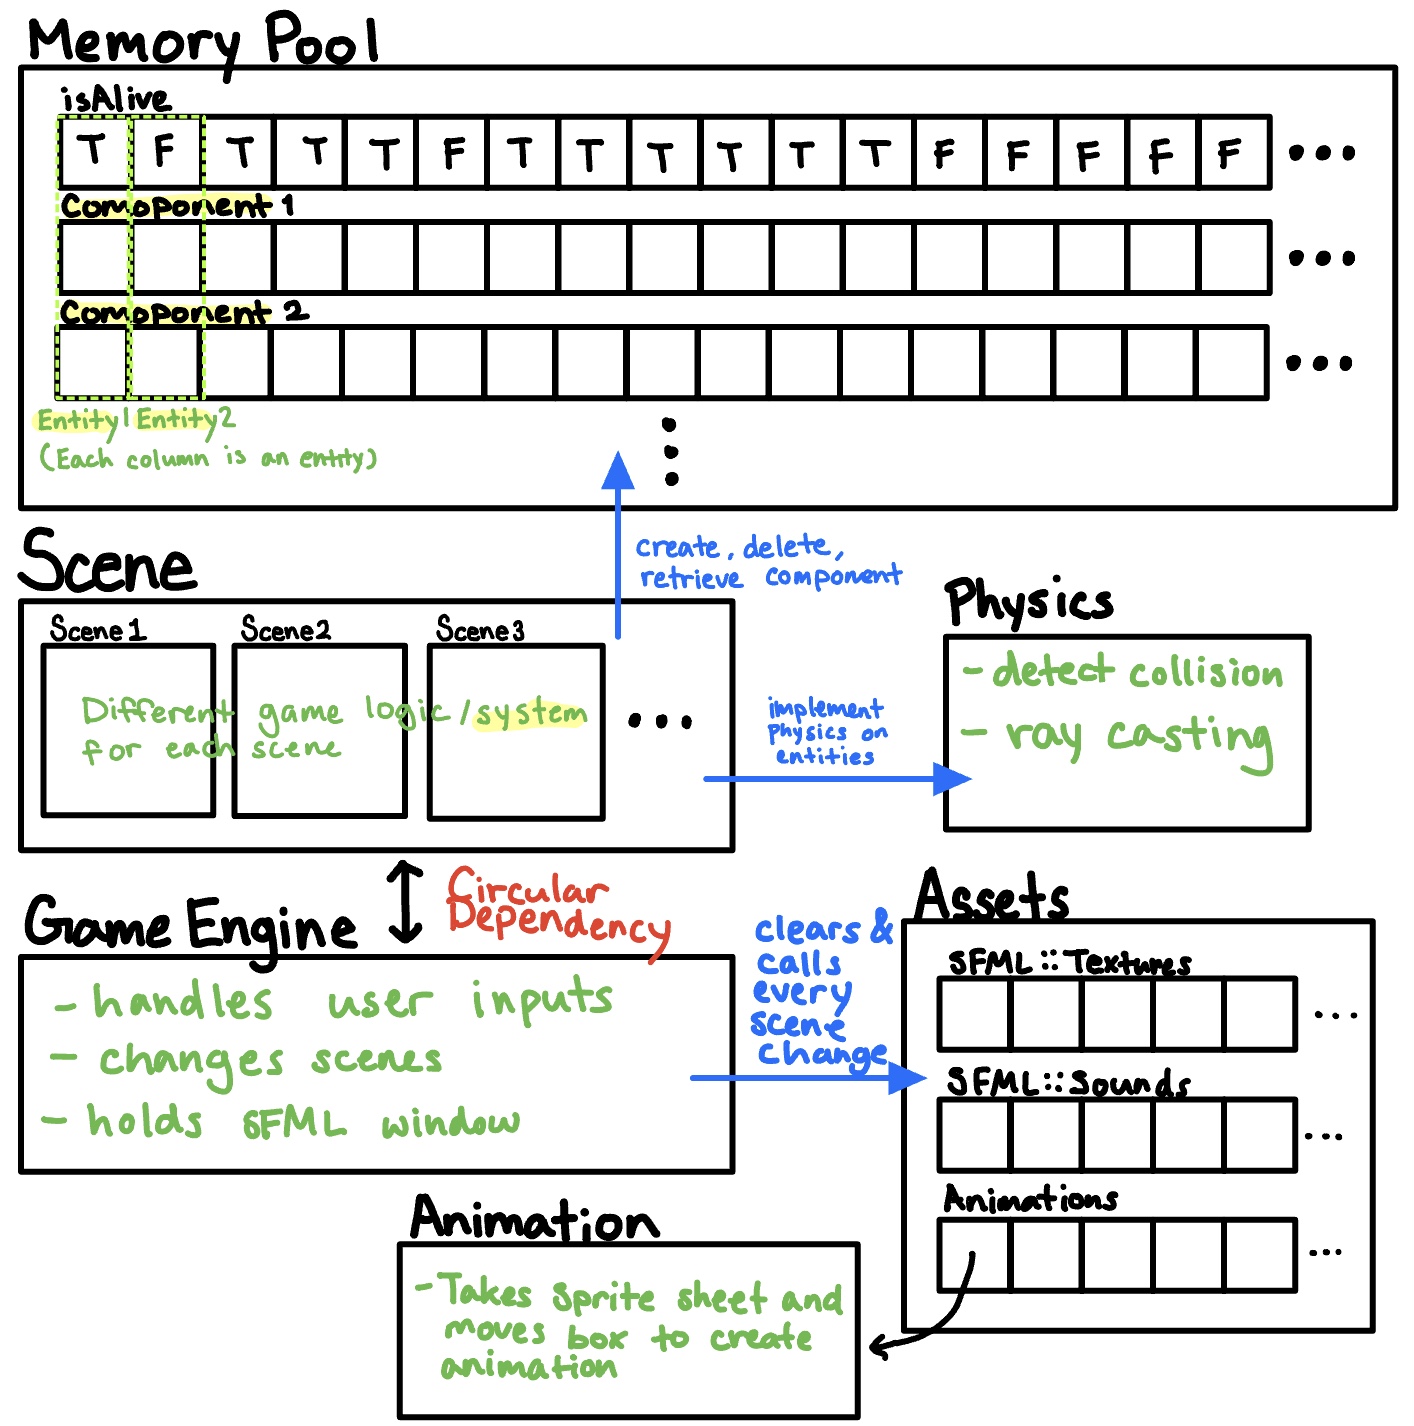 Memory Pool
isAlive
T F T T T F T T T T T T F F F F F ...
Comoponent 1
...
Comoponent 2
...
Entity1 Entity2
(Each column is an entity)
create, delete,
retrieve component
Scene
Scene1 Scene2 Scene3
Different game logic/system
for each scene
...
implement
Physics on
entities
Physics
- detect collision
- ray casting
Circular
Dependency
Game Engine
- handles user inputs
- changes scenes
- holds SFML window
clears &
calls
every
scene
change
Assets
SFML::Textures
...
SFML::Sounds
...
Animations
...
Animation
- Takes sprite sheet and
moves box to create
animation